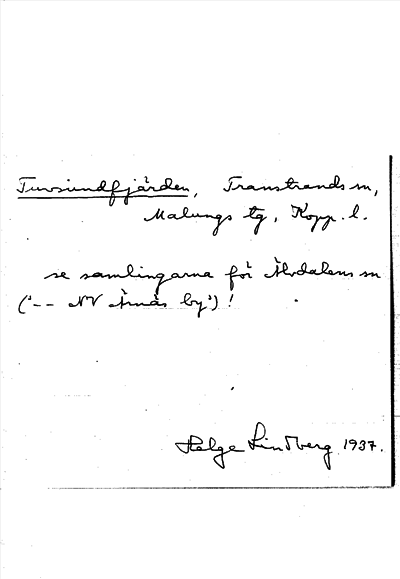 Tuvsundfjärden, Transtrands sn,
Malungs tg, Kopp. l.
se samlingarna för Älvdalens sn
('-- NV Årnäs by')!
Helge Lindberg 1937.